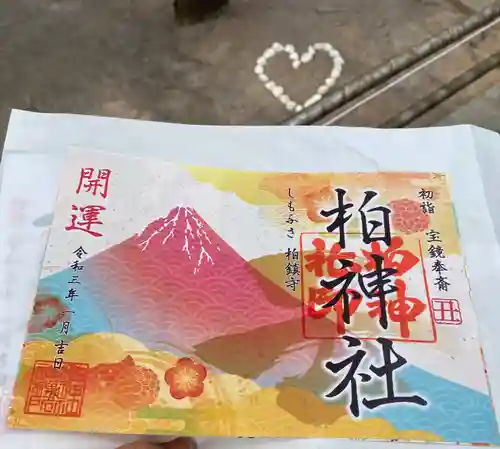 初詣 宝鏡奉斎
丑
柏神社
柏神社印
しもふさ 柏鎮守
開運
令和三年 一月吉日